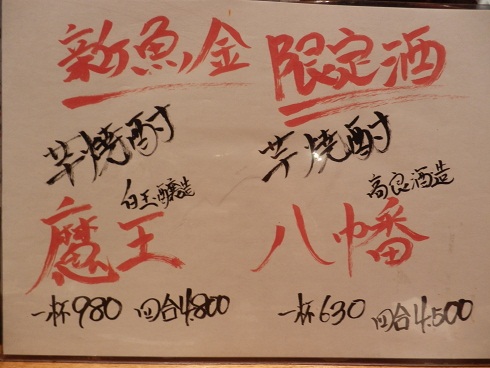 新魚金 限定酒
芋焼酎 芋焼酎
白玉醸造 高良酒造
魔王 八幡
一杯980 四合4.800 一杯630 四合4.500